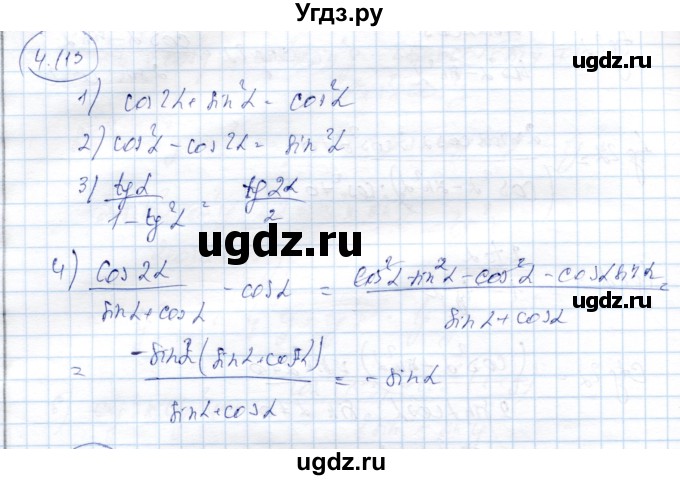 Угдз.ру
4.113
1) cos2α + sin²α = cos²α
2) cos²α - cos2α = sin²α
3) tgα / 1 - tg²α = tg2α / 2
ugdz.ru
4) cos2α / sinα + cosα - cosα = cos²α - sin²α - cos²α - cosα sinα / sinα + cosα =
= -sinα (sinα + cosα) / sinα + cosα = - sinα
ugdz.ru
ugdz.ru
ugdz.ru
ugdz.ru